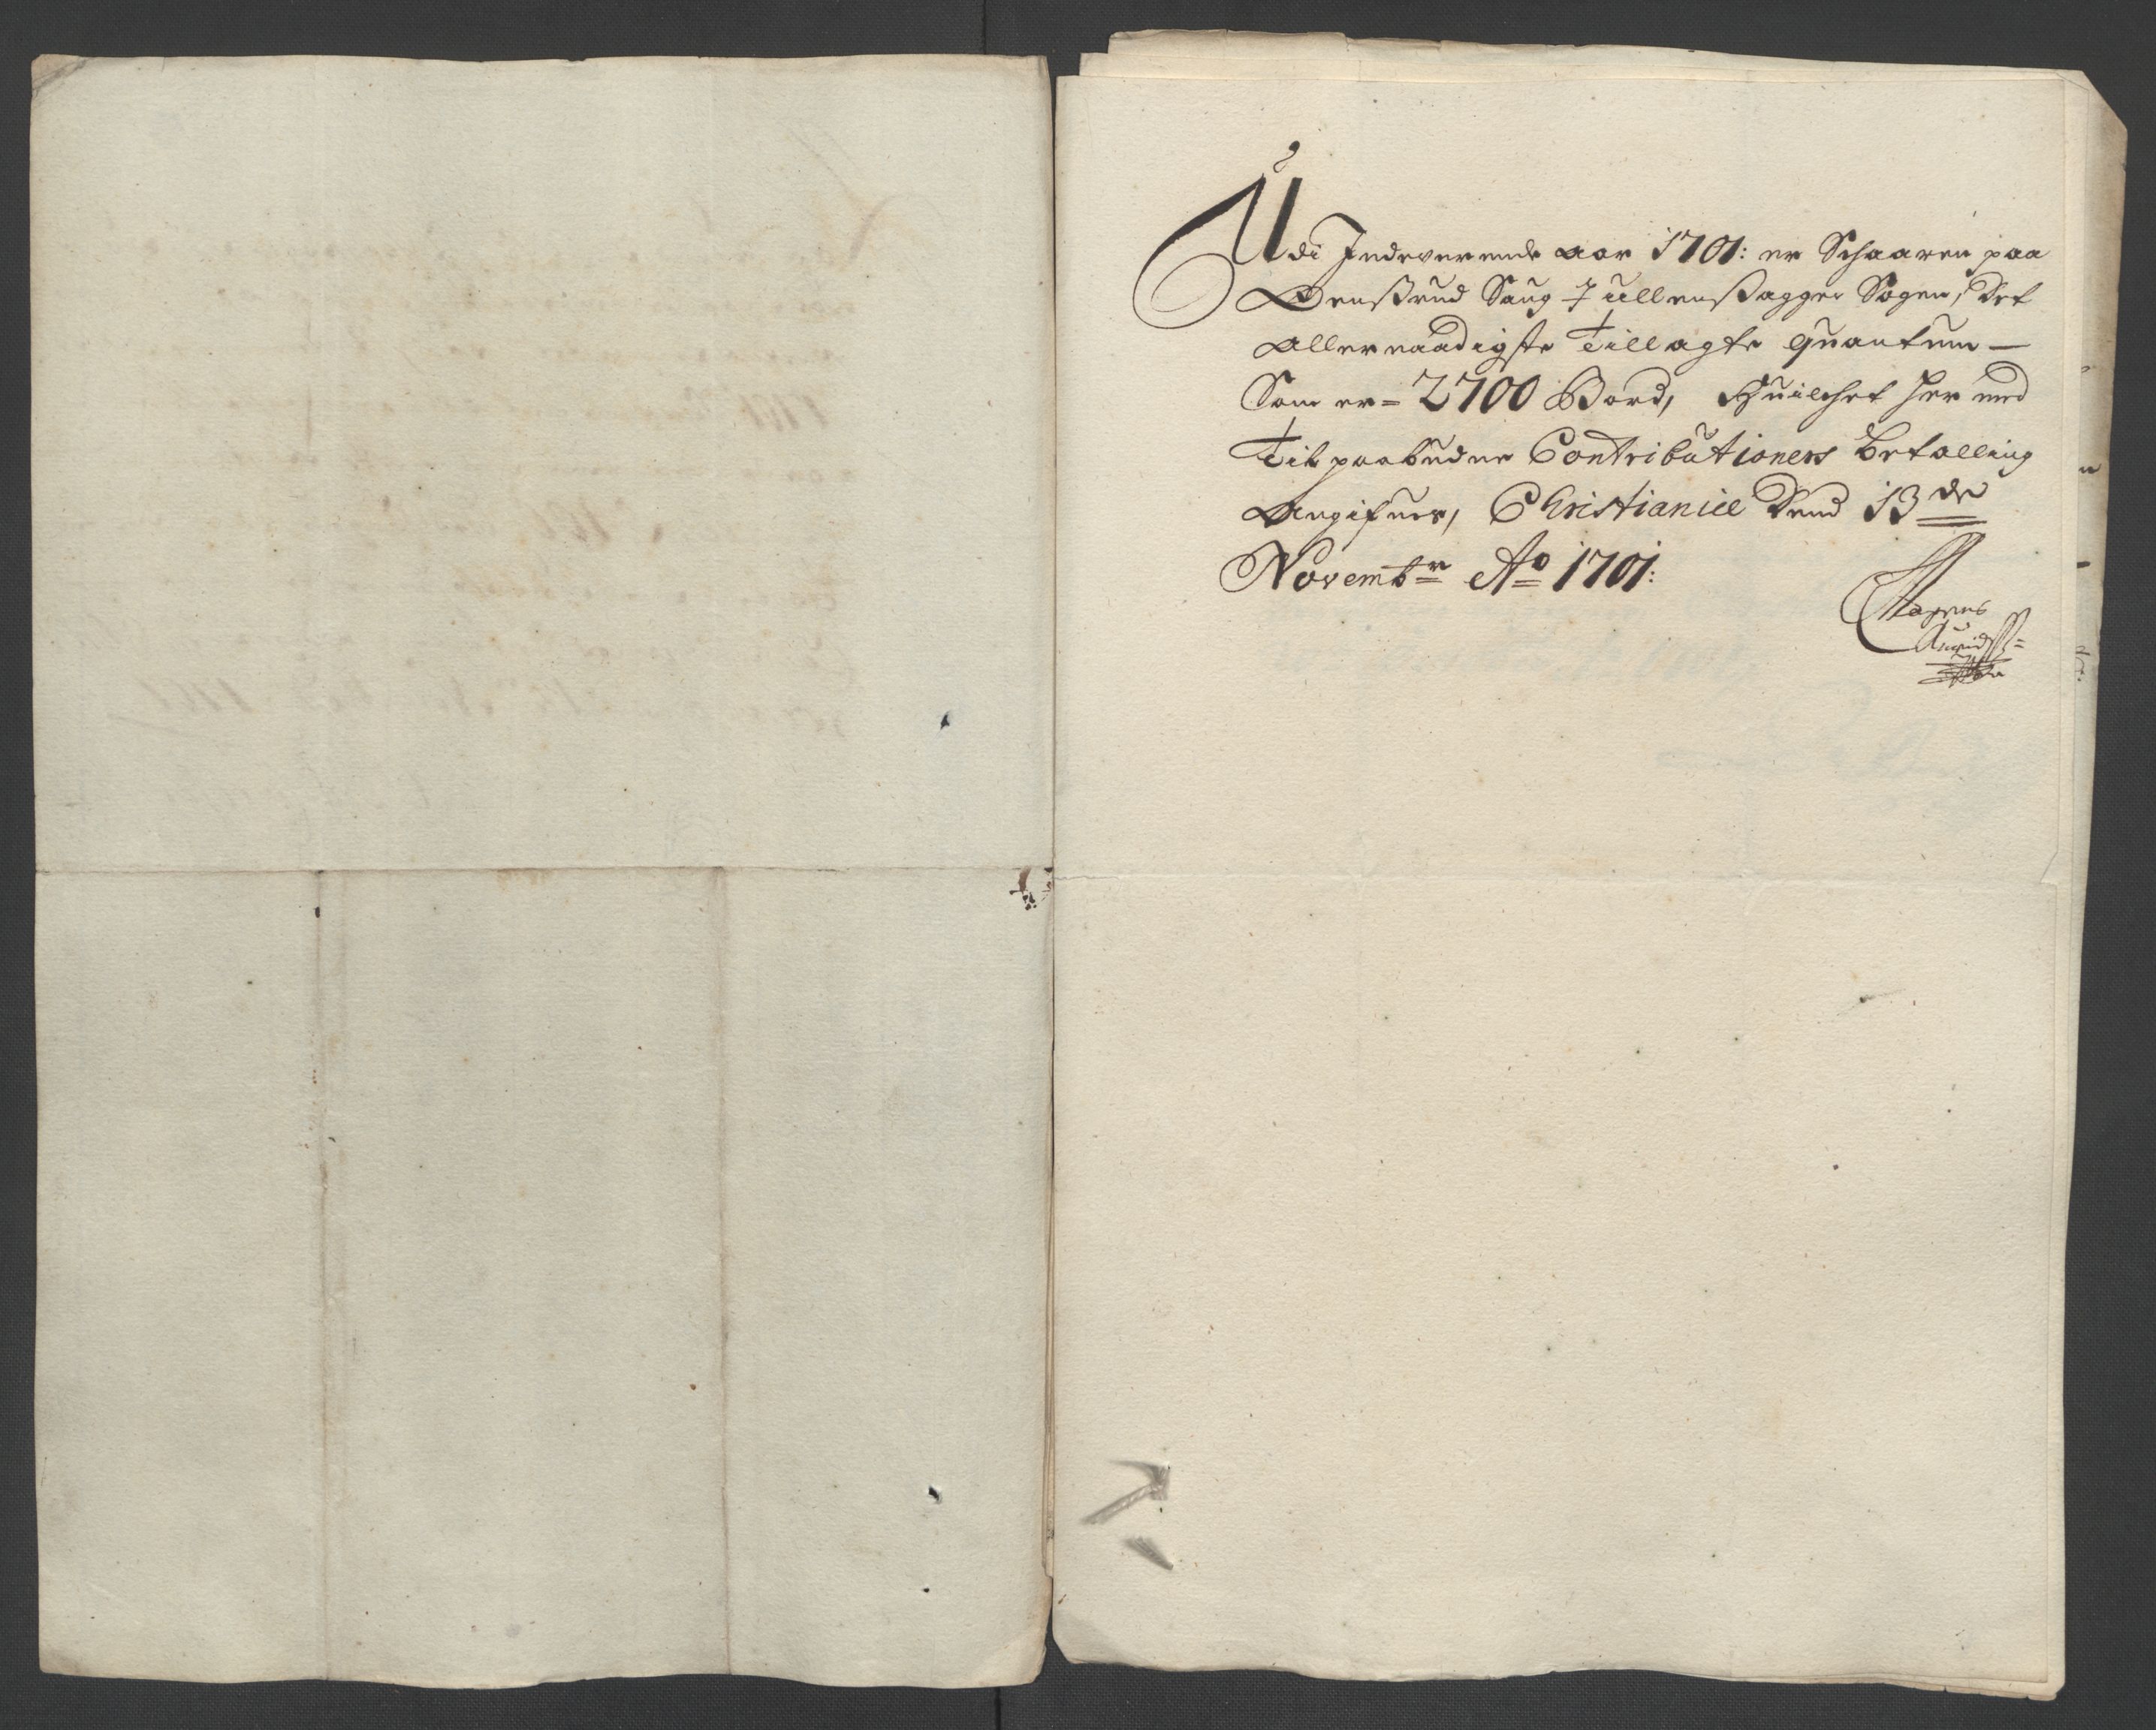 Udi Indeverende aar 1701: er Schaaren paa
Saug J ullensagger Sogen, Det
allernaadigste Tillagte quantum —
Som er = 2700 Bord, Huilchet her med
Til paabudne Contributioners betalling
Angifues, Christianiæ Dend 13de
Novembr Ao 1701:
Magnus